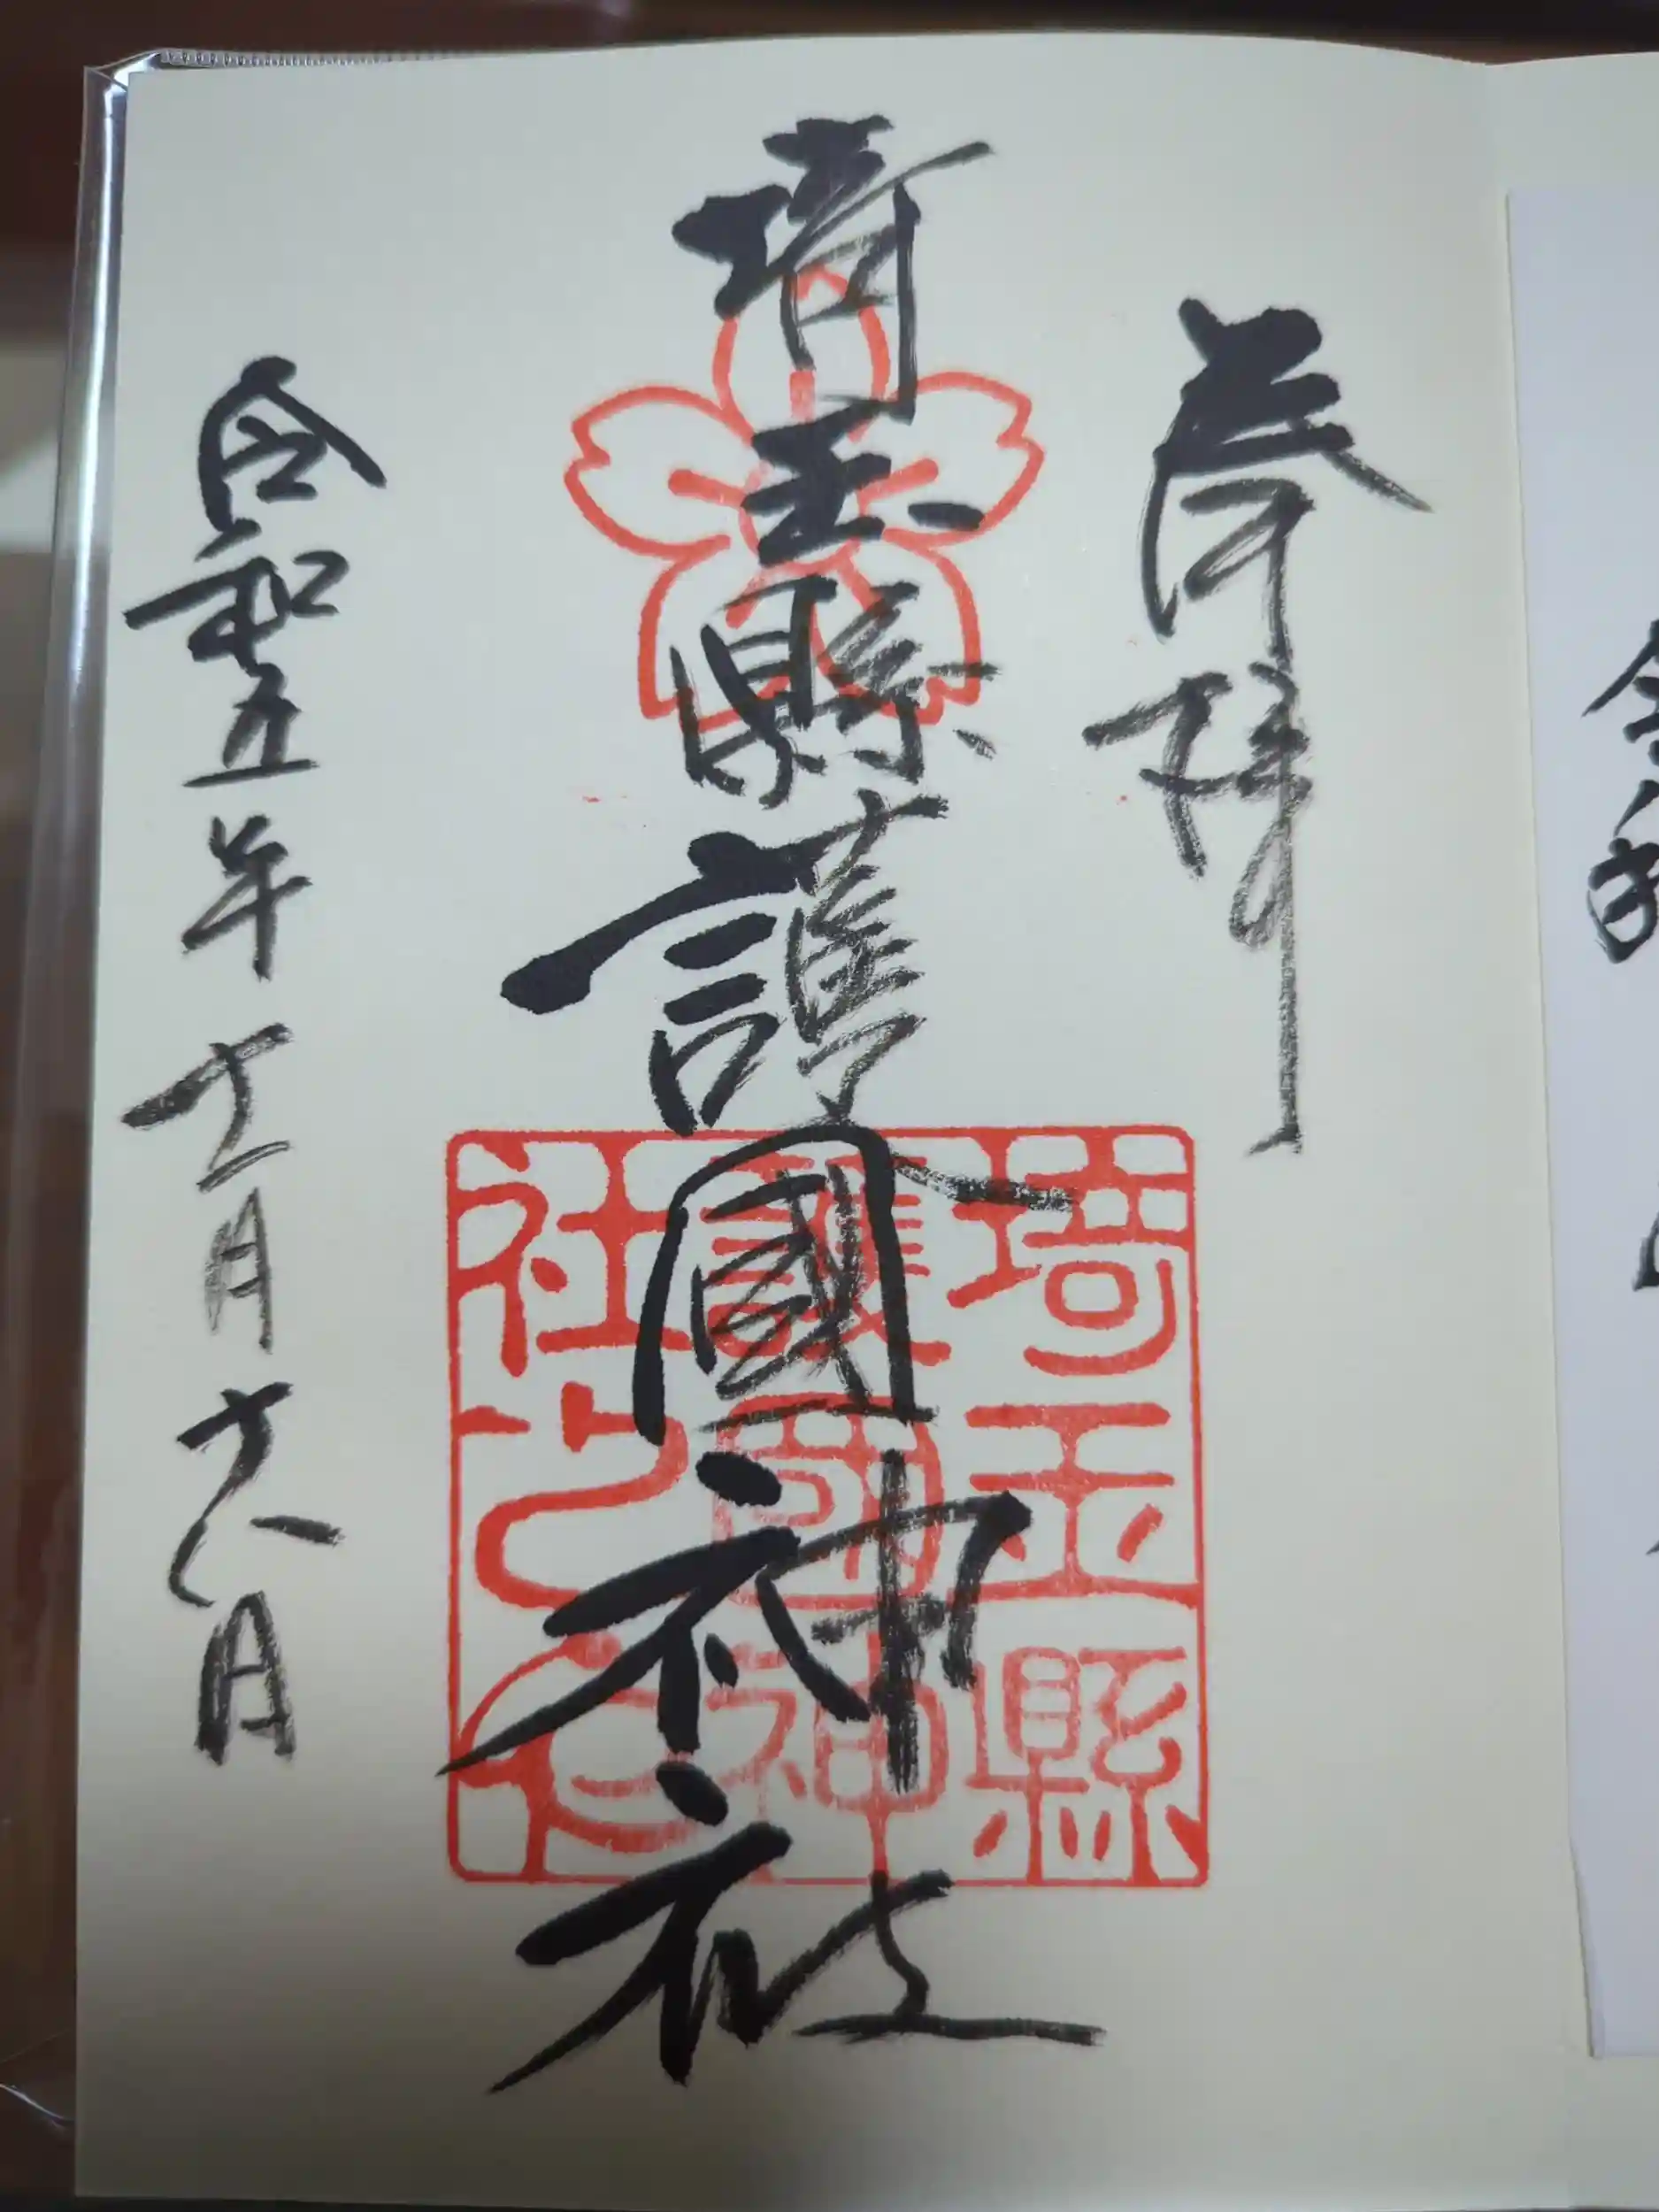 奉拝
埼玉縣護國神社
令和五年十二月十八日
埼玉縣
護國神
社之印